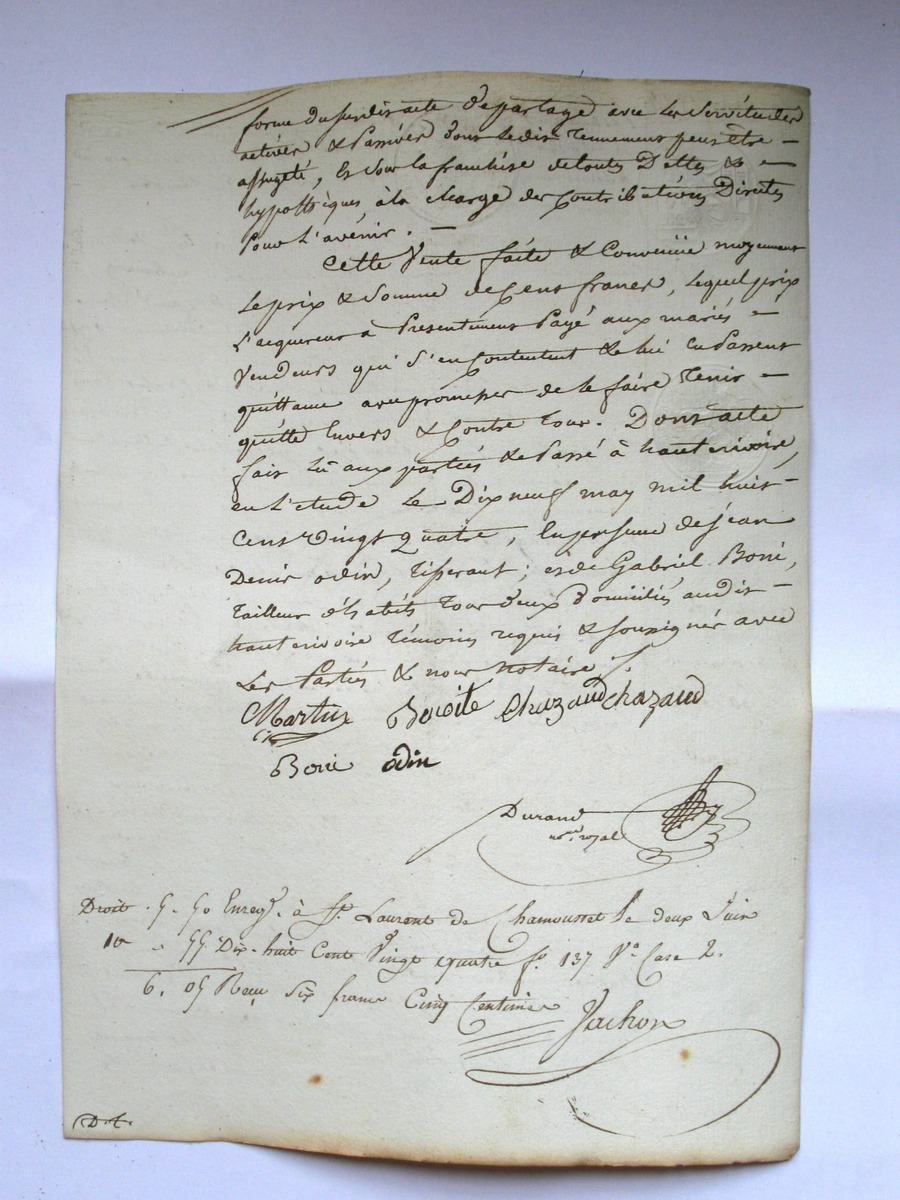 forme du susdit acte de partage avec les Servitudes
actives & Passives dont ledit tennement peut être –
assujeté, Et sous la franchise de toutes Dettes & –
hypothèques à la charge des Contributions Directes
Pour L'avénir. –
Cette Vente faite & Convenüe moyennant
Le prix & Somme de Cent francs, lequel prix
L'acquereur à Présentement Payé aux mariés –
Vendeurs qui s'en Contentent & lui en Passent
quittance avec promesse de le faire Tenir –
quitte Envers & Contre tous. Dont acte
fait lu aux parties & Passé à hauterivoire,
en L'etude Le Dix neuf may mil huit –
Cent Vingt Quatre, En presence de jean
Denis odin, tisserant; et de Gabriel Boné,
tailleur d'habits tous deux domiciliés audit –
hauterivoire témoins requis & soussignés avec
Les Parties & nous Notaire /.
Martin Benoite Chazaud chazaud
Boné odin
Durand
not.re royal
Droit . 5 . 50 Enreg.é à St. Laurent de Chamousset le deux Juin
10e . 55 Dix-huit Cent Vingt quatre fo. 137 Vo Case 2.
6. 05 Reçu Six francs Cinq Centimes
Jachon
D.t.